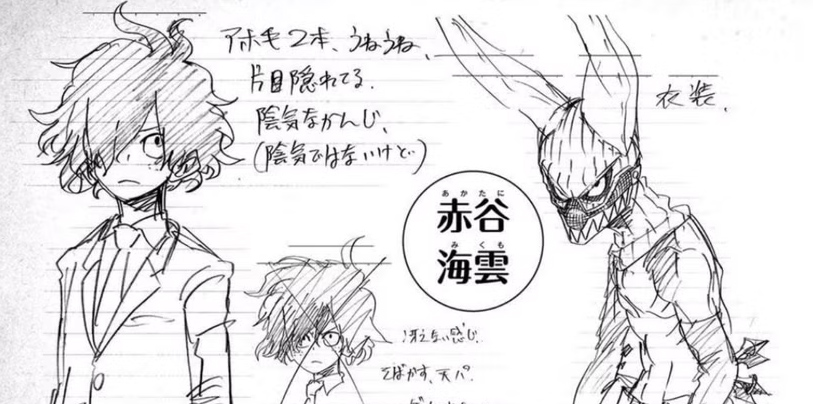 アホ毛2本、うねうね、
片目隠れてる.
陰気なかんじ、
(陰気ではないけど)
衣装、
あかたに
赤谷
みくも
海雲
冴えない感じ.
そばかす、天パ.